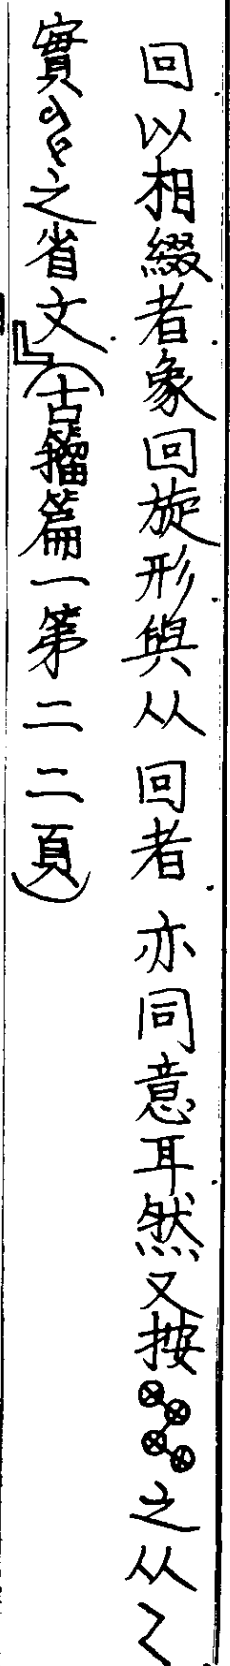 回以相綴者象回旋形與从回者亦同意耳然又按之从乙
實之省文』(古籀篇一第二二頁)